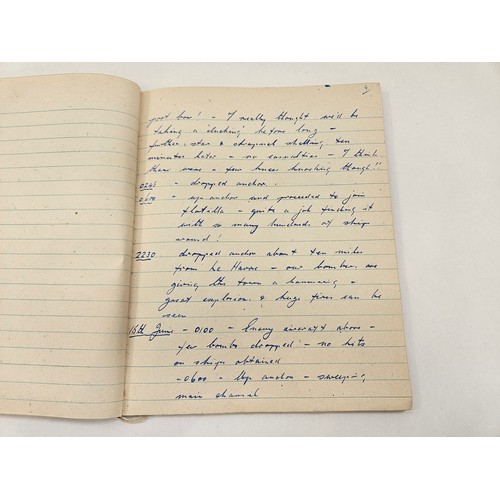 9
port bow! - I really thought we'd be
taking a ducking before long -
further star & shrapnel shelling ten
minutes later - no casualties - I think
there were a few knees knocking though!!
0245 - dropped anchor.
0600 - up anchor and proceeded to join
flotilla - quite a job finding it
with so many hundreds of ships
around!
2230 dropped anchor about ten miles
from Le Havre - our bombers are
giving the town a hammering -
great explosions & huge fires can be
seen
15th June - 0100 - Enemy aircraft above -
few bombs dropped - no hits
on ships obtained
- 0600 - Up anchor - sweeping
main channel